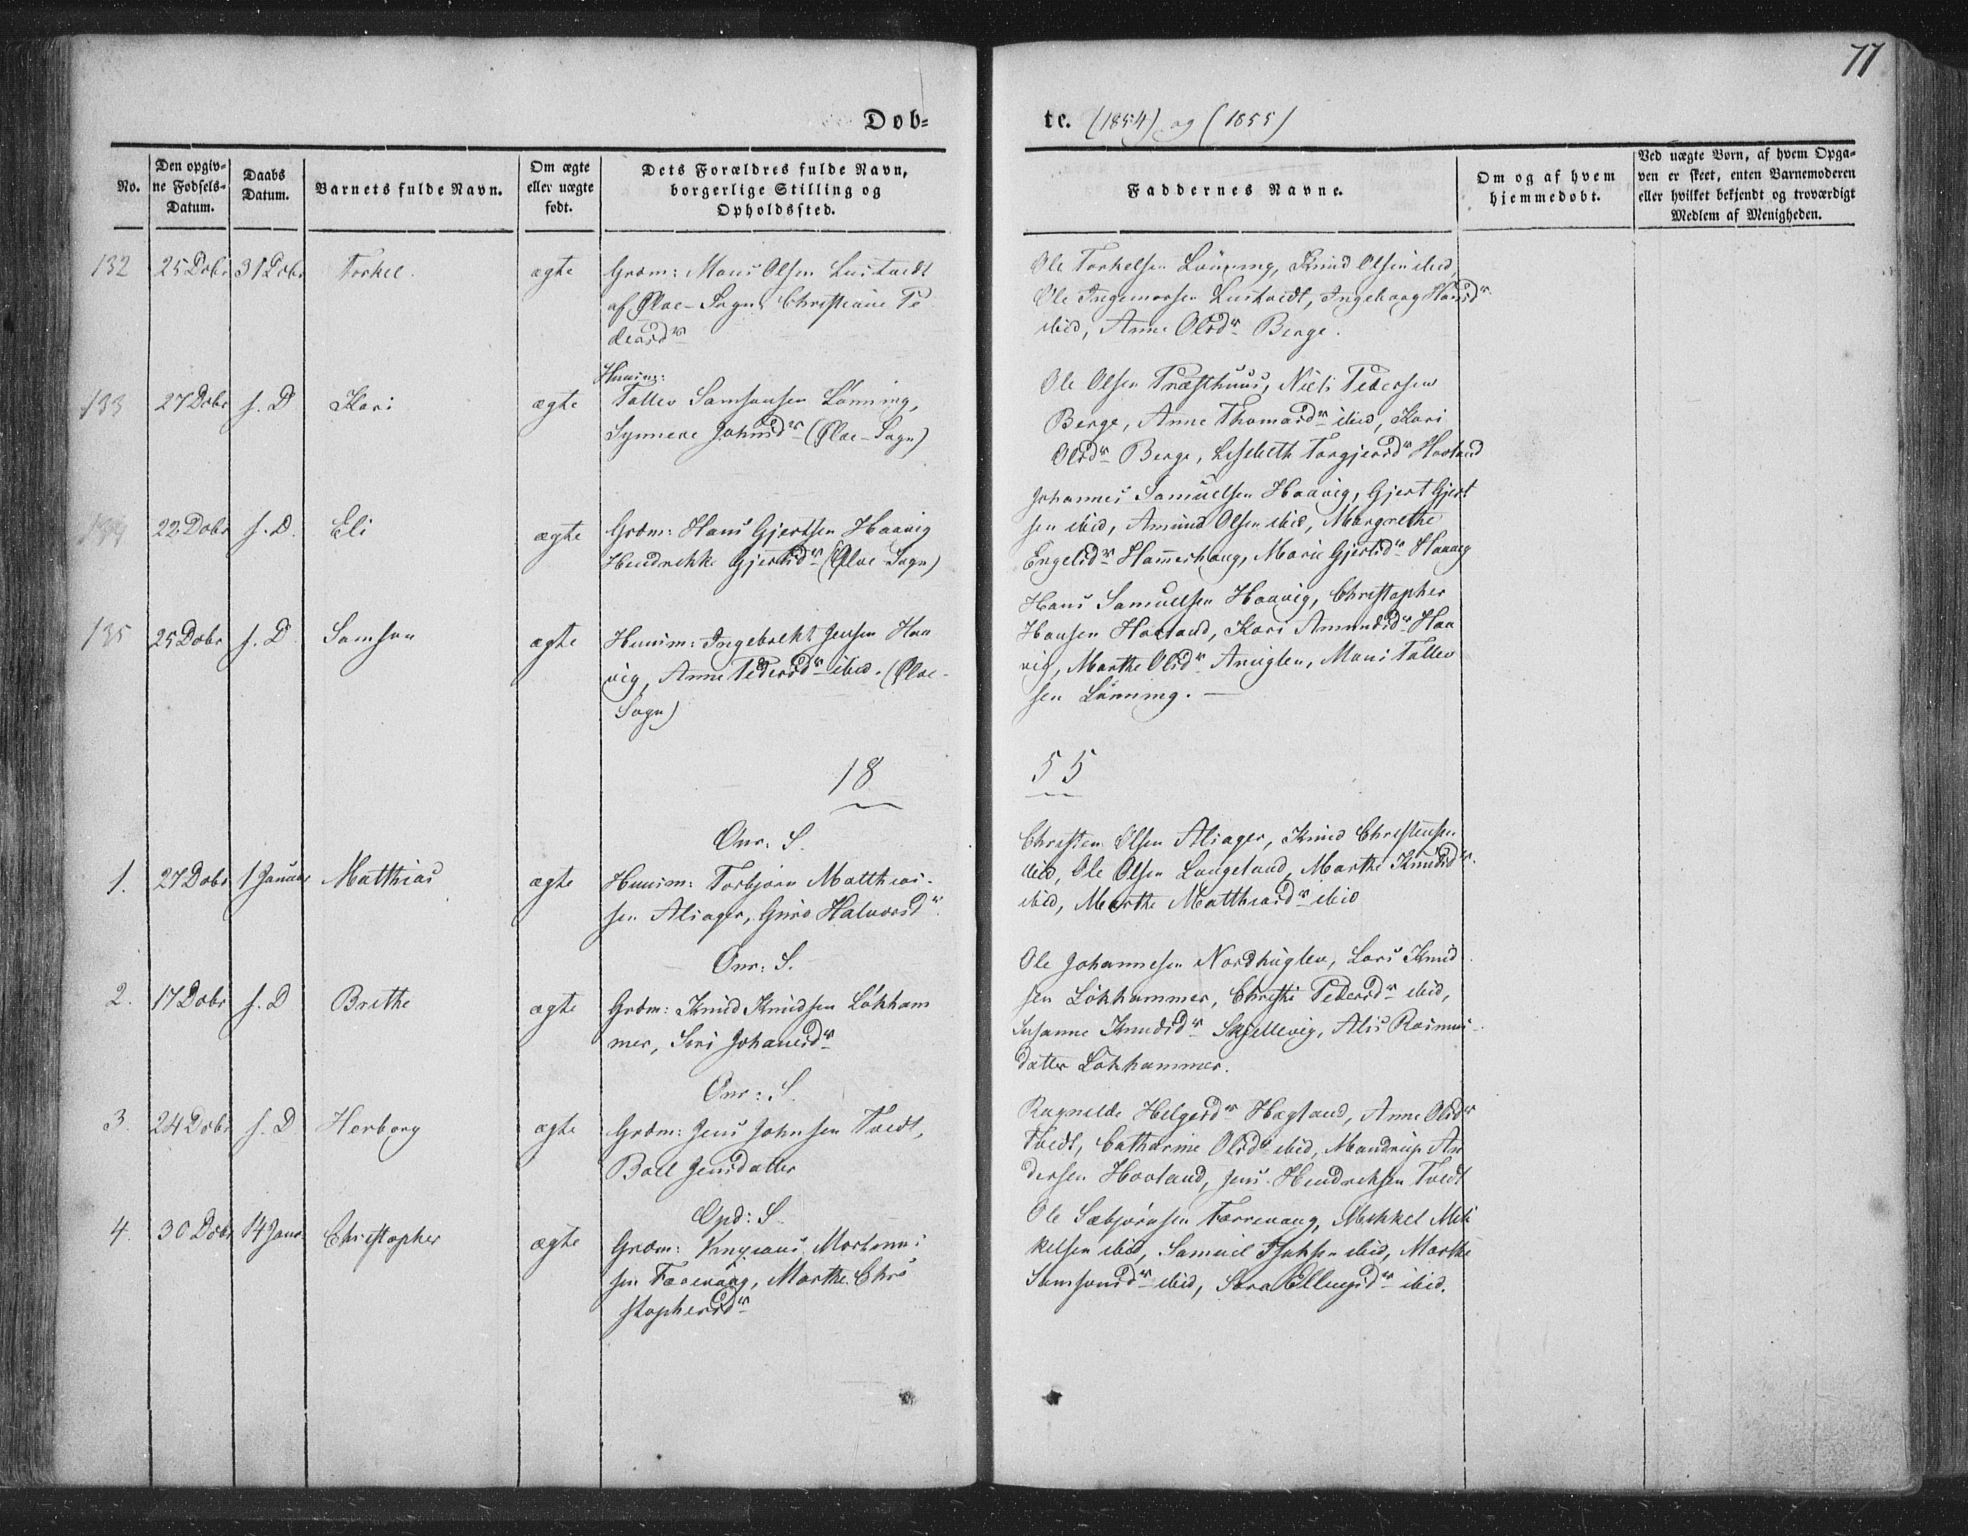 77
Døb-
te. (1854) og (1855)
No.
Den opgiv-
ne Fødsels-
Datum.
Daabs
Datum.
Barnets fulde Navn.
Om ægte
eller uægte
født.
Dets Forældres fulde Navn,
borgerlige Stilling og
Opholdssted.
Faddernes Navne.
Om og af hvem
hjemmedøbt.
Ved uægte Børn, af hvem Opga-
ven er skeet, enten Barnemoderen
eller hvilket bekjendt og troværdigt
Medlem af Menigheden.
132 25 Dobr 31 Dobr Torkel. ægte
Grdm: Mons Olsen Lustvedt
af Øloe-Sogn, Christiane Pe
dersdr
Ole Torkelsen Lønning, Knud Olsen ibid,
Ole Ingemorsen Lustvedt, Ingeborg Hansdr
ibid, Anne Olsdr Berge.
133 27 Dobr s. D Kari ægte
Huusm:
Tollev Samsonsen Lønning,
Synneve Johnsdr (Øloe-Sogn)
Ole Olsen Præsthuus, Niels Pedersen
Berge, Anne Thomasdr ibid, Kari
Olsdr Berge, Lisbeth Torgjersdr Hovland
134 22 Dobr s. D. Eli ægte
Grdm: Hans Gjertsen Haavig
Hendrikke Gjertsdr (Øloe-Sogn)
Johannes Samuelsen Haavig, Gjert Gjert
sen ibid, Amund Olsen ibid, Margrethe
Engelsdr Hammershaug, Marie Gjertsdr Haavig
135 25 Dobr s. D. Samson ægte
Huusm: Ingebrekt Jensen Haa
vig, Anne Pedersdr ibid. (Øloe-
Sogn)
Hans Samuelsen Haavig, Christopher
Hansen Hovland, Kari Amundsdr Haa
vig, Marthe Olsdr Anuglen, Mons Tollev
sen Lønning. —
18 55
Onr: S.
1. 27 Dobr 1 Januar Matthias ægte
Huusm: Torbjørn Matthias-
sen Alsager, Guro Halvorsdr
Christen Olsen Alsager, Knud Christensen
ibid, Ole Olsen Langeland, Marthe Knudsdr
ibid, Marthe Matthiasdr ibid
Onr: S.
2. 17 Dobr s. D Brithe ægte
Grdm: Knud Knudsen Løkham
mer, Siri Johansdr
Ole Johannesen Nordhuglen, Lars Knud
sen Løkhammer, Christi Pedersdr ibid,
Susanne Knudsdr Skjellevig, Alis Rasmus-
datter Løkhammer.
Onr: S.
3. 24 Dobr s. D Herborg ægte
Grdm: Jens Johnsen Tvedt,
Boel Jensdatter
Ragnilde Helgesdr Hægland, Anne Olsdr
Tvedt, Catharine Olsdr ibid, Mandrup An
dersen Hovland, Jens Hendriksen Tvedt
Opd: S.
4. 30 Dobr 14 Janr Christopher ægte
Grdm: Mortens
sen Færevaag, Marthe Chri
stophersdr
Ole Sæbjørnsen Færrevaag, Mikkel Mik
kelsen ibid, Samuel ibid, Marthe
Samsonsdr ibid, Sara Ellingsdr ibid.